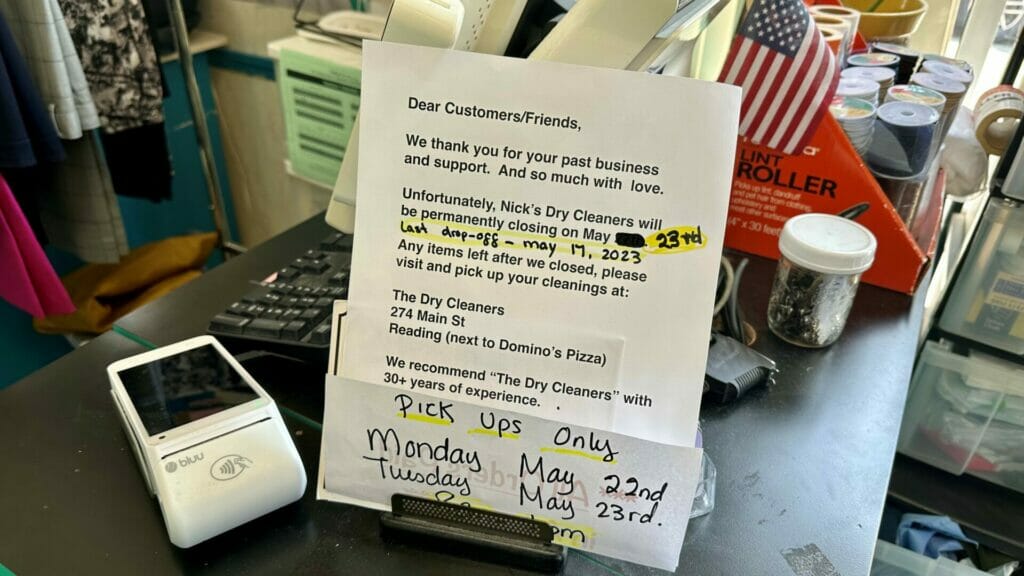 Dear Customers/Friends,
We thank you for your past business
and support. And so much with love.
Unfortunately, Nick's Dry Cleaners will
be permanently closing on May 23rd
last drop-off - may 17, 2023
Any items left after we closed, please
visit and pick up your cleanings at:
The Dry Cleaners
274 Main St
Reading (next to Domino's Pizza)
We recommend "The Dry Cleaners" with
30+ years of experience.
Pick Ups Only
Monday May 22nd
Tuesday May 23rd.
pm
bluu
LINT
ROLLER
Pick up lint, dandruff
and pet hair from clothing,
upholstery and
other surfaces
4" x 30 feet